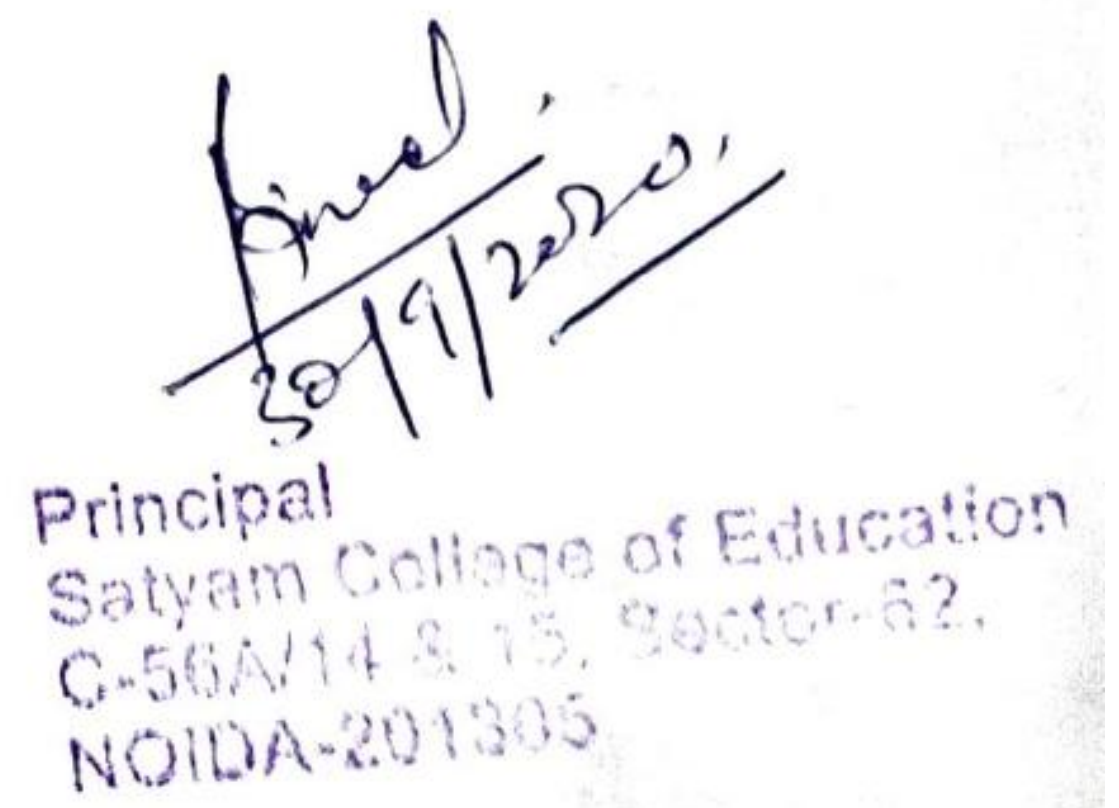 30/9/2020.
Principal
Satyam College of Education
C-56A/14 & 15, Sector-62,
NOIDA-201305